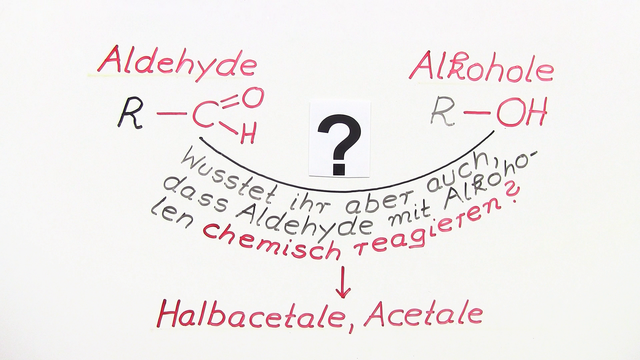 Aldehyde
Alkohole
R — C =O —H
R — OH
?
Wusstet ihr aber auch,
dass Aldehyde mit Alkoho-
len chemisch reagieren?
↓
Halbacetale, Acetale